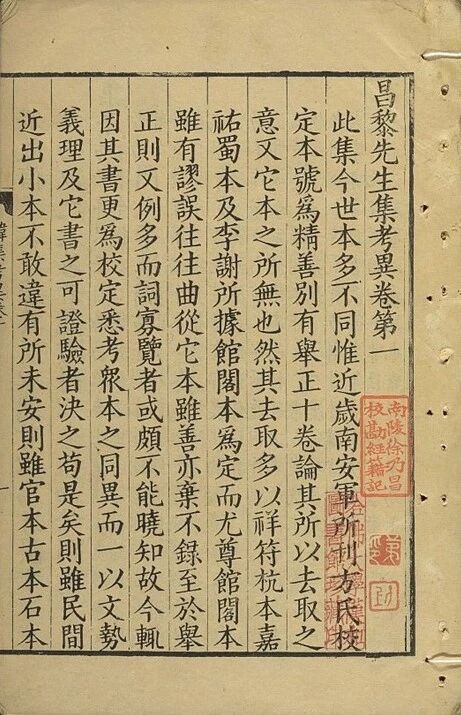 昌黎先生集考異卷第一
此集今世本多不同惟近歲南安軍所刋方氏校
定本號爲精善別有舉正十卷論其所以去取之
意又它本之所無也然其去取多以祥符杭本嘉
祐蜀本及李謝所據館閣本爲定而尤尊館閣本
雖有謬誤往往曲從它本雖善亦棄不錄至於舉
正則又例多而詞寡覽者或頗不能曉知故今輒
因其書更爲校定悉考衆本之同異而一以文勢
義理及它書之可證驗者決之苟是矣則雖民間
近出小本不敢違有所未安則雖官本古本石本
南陵徐乃昌
校勘經籍記